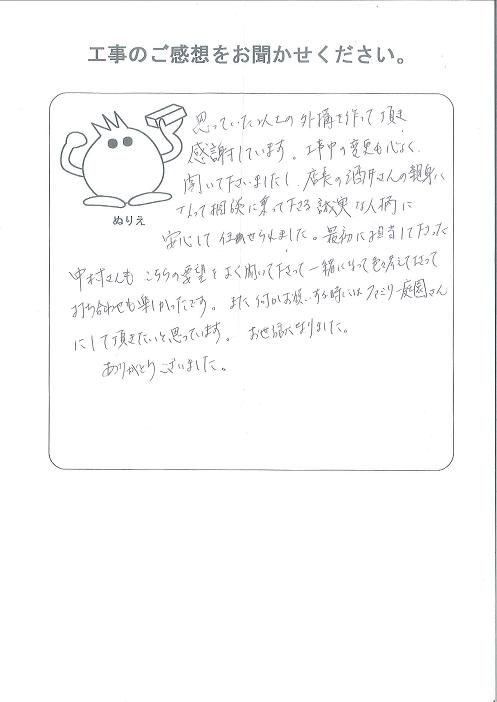 工事のご感想をお聞かせください。
思っていた以上の外構を作って頂き
感謝しています。工事中の変更も心よく
聞いて下さいましたし、店長の酒井さんの親身に
なって相談に乗って下さる誠実な人柄に
安心して任せられました。最初に担当して下さった
ぬりえ
中村さんも こちらの要望をよく聞いて下さって一緒になって色々考えて下さって
打ち合わせも楽しかったです。また何かお願いする時にはファミリー庭園さん
にして頂きたいと思っています。お世話になりました。
ありがとうございました。